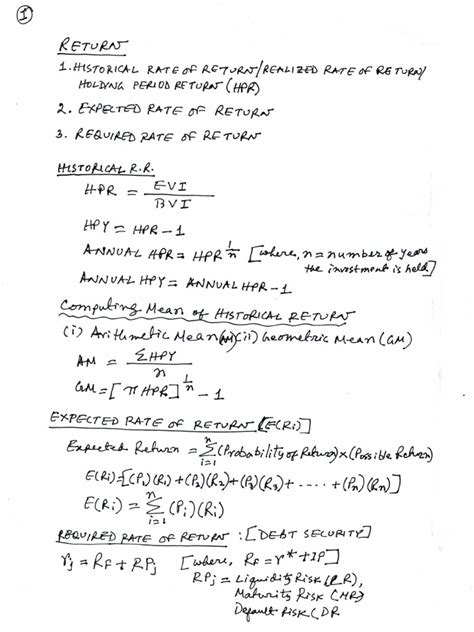 I
RETURN
1. HISTORICAL RATE OF RETURN/REALIZED RATE OF RETURN/
HOLDING PERIOD RETURN (HPR)
2. EXPECTED RATE OF RETURN
3. REQUIRED RATE OF RETURN
HISTORICAL R.R.
HPR = EVI / BVI
HPY = HPR - 1
ANNUAL HPR = HPR^(1/n) [where, n = number of years
the investment is held]
ANNUAL HPY = ANNUAL HPR - 1
Computing Mean of HISTORICAL RETURN
(i) Arithmetic Mean (AM) (ii) Geometric Mean (GM)
AM = ΣHPY / n
GM = [π HPR]^(1/n) - 1
EXPECTED RATE OF RETURN [E(Ri)]
Expected Return = Σ_{i=1}^{n} (Probability of Return) × (Possible Return)
E(Ri) = [(P1)(R1) + (P2)(R2) + (P3)(R3) + ---- + (Pn)(Rn)]
E(Ri) = Σ_{i=1}^{n} (Pi)(Ri)
REQUIRED RATE OF RETURN : [DEBT SECURITY]
rj = RF + RPj [where, RF = r* + IP]
RPj = Liquidity Risk (LR),
Maturity Risk (MR)
Default Risk (DR